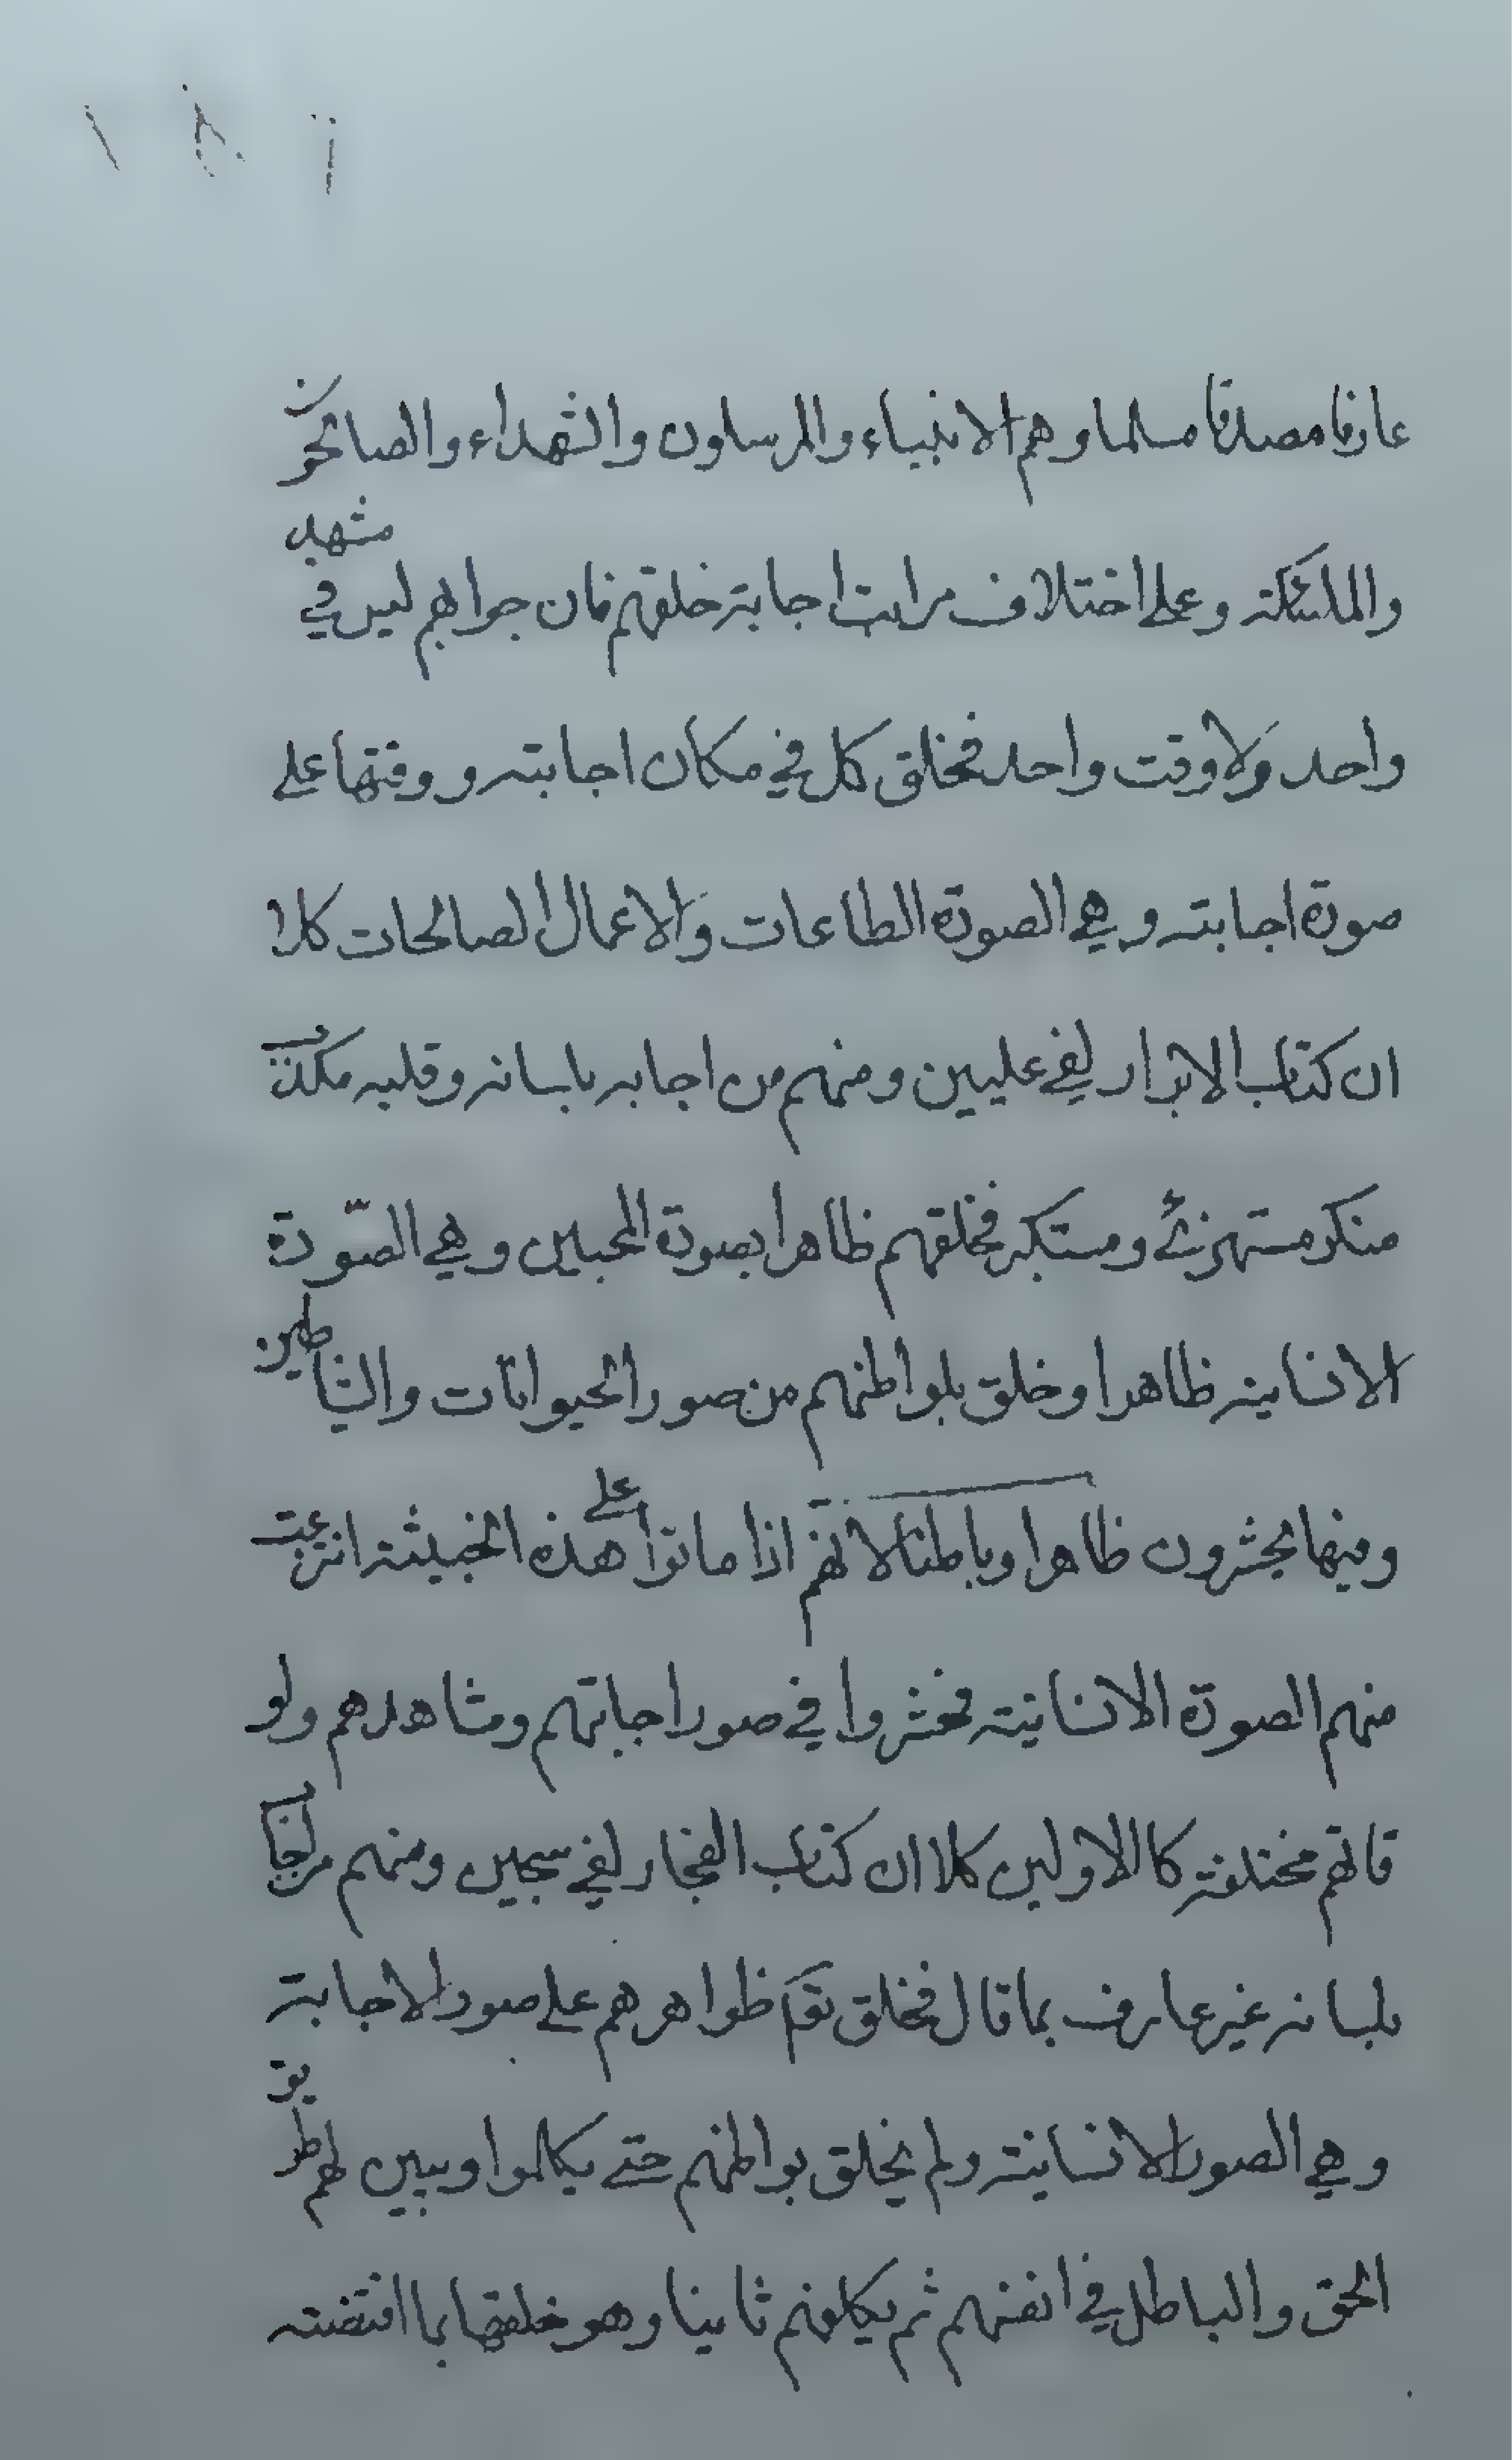 عارفا مصدقا مسلما وهم الانبياء والمرسلون والشهداء والصالحون
والملئكة وعلى اختلاف مراتب اجابة خلقهم فان جوابهم ليس في مشهد
واحد ولا وقت واحد فخلق كل في مكان اجابته و وقتها على
صورة اجابته وهي الصورة الطاعات والاعمال الصالحات كلا
ان كتاب الابرار لفي عليين ومنهم من اجابه بلسانه وقلبه مكذب
منكر مستهزئ ومستكبر فخلقهم ظاهرا بصورة المحبين وهي الصّورة
الانسانية ظاهرا وخلق بلواطنهم من صور الحيوانات والشياطين
وفيها يحشرون ظاهرا وباطنا لانهم اذا ماتوا على هذه الخبيثة انتزعت
منهم الصورة الانسانية فحشروا في صور اجابتهم ومشاهدهم ولو
قاتهم مختلفة كالاولين كلا ان كتاب الفجار لفي سجين ومنهم من اجاب
بلسانه غير عارف بما قال فخلق تع ظواهرهم على صور الاجابة
وهي الصور الانسانية ولم يخلق بواطنهم حتى يكلموا ويبين لهم طريق
الحق والباطل في انفسهم ثم يكلفهم ثانيا وهو خلقها بما اقتضته